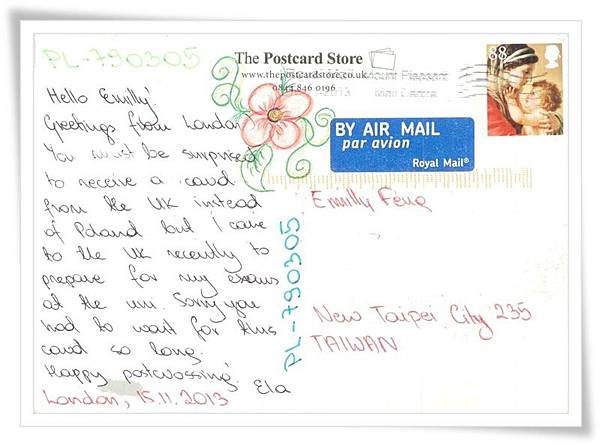 PL-790305
The Postcard Store
www.thepostcardstore.co.uk
0844 846 0196
Mount Pleasant
2013 Mail Centre
88
Hello Emilly!
Greetings from London
You must be surprised
to receive a card
from the UK instead
of Poland but I came
to the UK recently to
prepare for my exams
at the uni. Sorry you
had to wait for this
card so long.
Happy postcrossing!
Ela
London, 15.11.2013
BY AIR MAIL
par avion
Royal Mail®
PL-790305
Emilly Feng
New Taipei City 235
TAIWAN